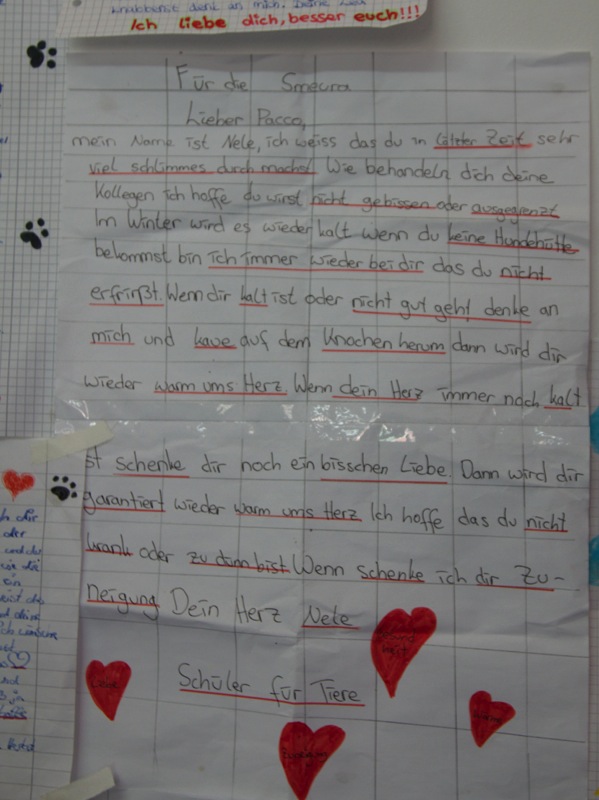 dich an mich. Deine
Ich liebe dich, besser euch!!!
Für die Smeura
Lieber Pacco,
mein Name ist Nele, ich weiss das du in letzter Zeit sehr
viel schlimmes durch machst. Wie behandeln dich deine
Kollegen ich hoffe du wirst nicht gebissen oder ausgegrenzt
Im Winter wird es wieder kalt wenn du keine Hundehütte
bekommst bin ich immer wieder bei dir das du nicht
erfrißt. Wenn dir kalt ist oder nicht gut geht denke an
mich und kaue auf dem Knochen herum dann wird dir
wieder warm ums Herz. Wenn dein Herz immer noch kalt
ist schenke dir noch ein bisschen Liebe. Dann wird dir
garantiert wieder warm ums Herz Ich hoffe das du nicht
krank oder zu dünn bist Wenn schenke ich dir Zu-
neigung Dein Herz Nele
Schüler für Tiere
Liebe